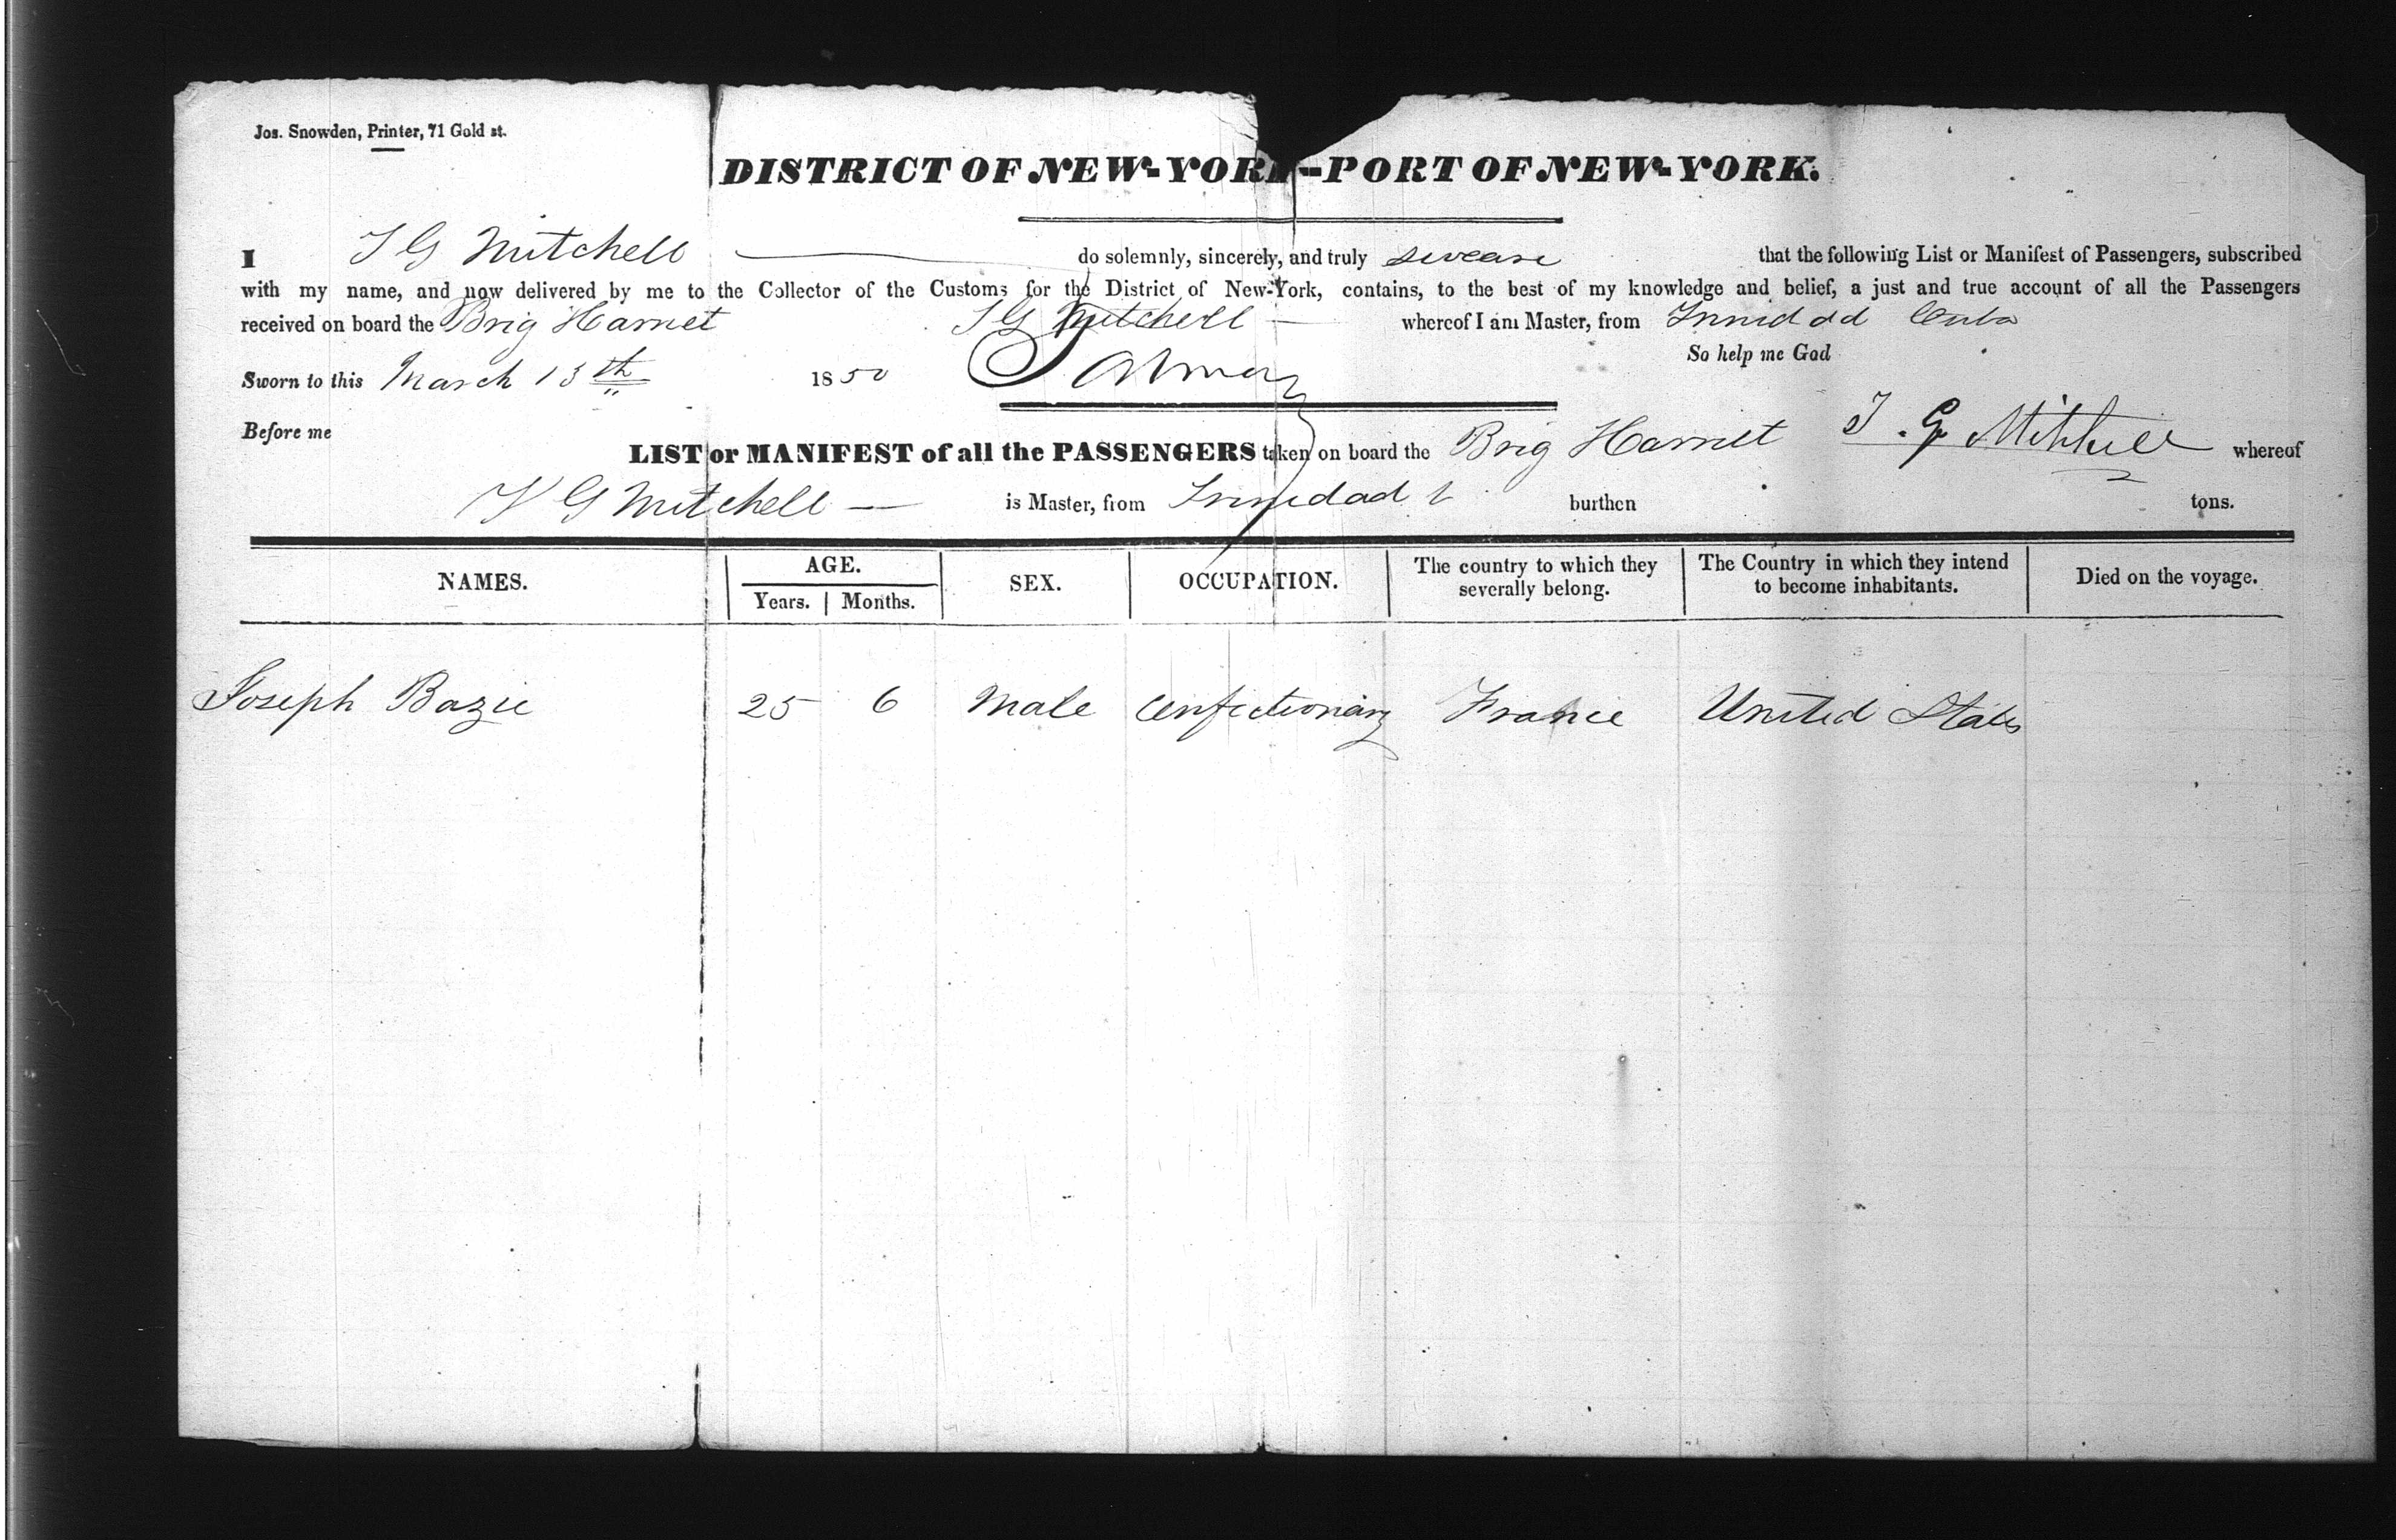 Jos. Snowden, Printer, 71 Gold st.
DISTRICT OF NEW-YORK--PORT OF NEW-YORK.
I T G Mitchell do solemnly, sincerely, and truly swear that the following List or Manifest of Passengers, subscribed
with my name, and now delivered by me to the Collector of the Customs for the District of New-York, contains, to the best of my knowledge and belief, a just and true account of all the Passengers
received on board the Brig Harriet T G Mitchell whereof I am Master, from Trinidad Cuba
So help me God
Sworn to this March 13th 1850
Before me
LIST or MANIFEST of all the PASSENGERS taken on board the Brig Harriet T. G Mitchell whereof
T G Mitchell — is Master, from Trinidad burthen tons.
NAMES. AGE. Years. Months. SEX. OCCUPATION. The country to which they severally belong. The Country in which they intend to become inhabitants. Died on the voyage.
Joseph Bazie 25 6 Male Confectionary France United States